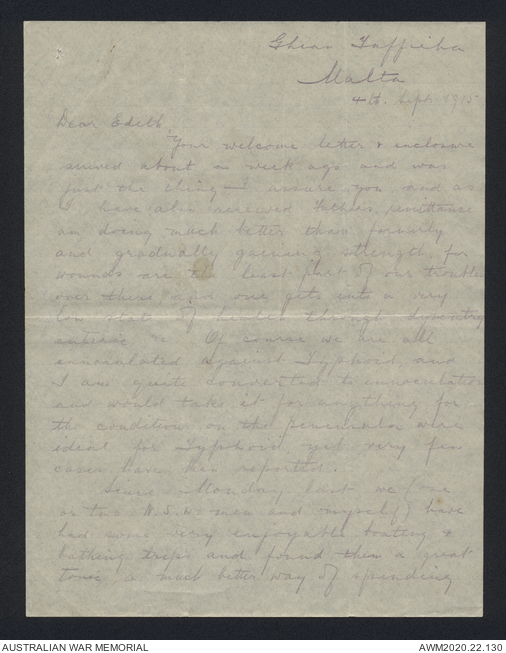 Ghain Tuffieha
Malta
4th. Sept. 1915
Dear Edith,
Your welcome letter & enclosure
arrived about a week ago and was
just the thing - I assure you and as
I have also received Fathers remittance
am doing much better than formerly
and gradually gaining strength for
wounds are the least part of our trouble
over there and one gets into a very
low state of health through dysentry
enteric &c. Of course we are all
innoculated against Typhoid and
I am quite converted to innoculation
and would take it for anything for
the conditions on the peninsula were
ideal for Typhoid yet very few
cases have been reported.
Since Monday last we (one
or two N.S.W. men and myself) have
had some very enjoyable boating &
bathing trips and found them a great
tonic, a much better way of spending
AUSTRALIAN WAR MEMORIAL
AWM2020.22.130